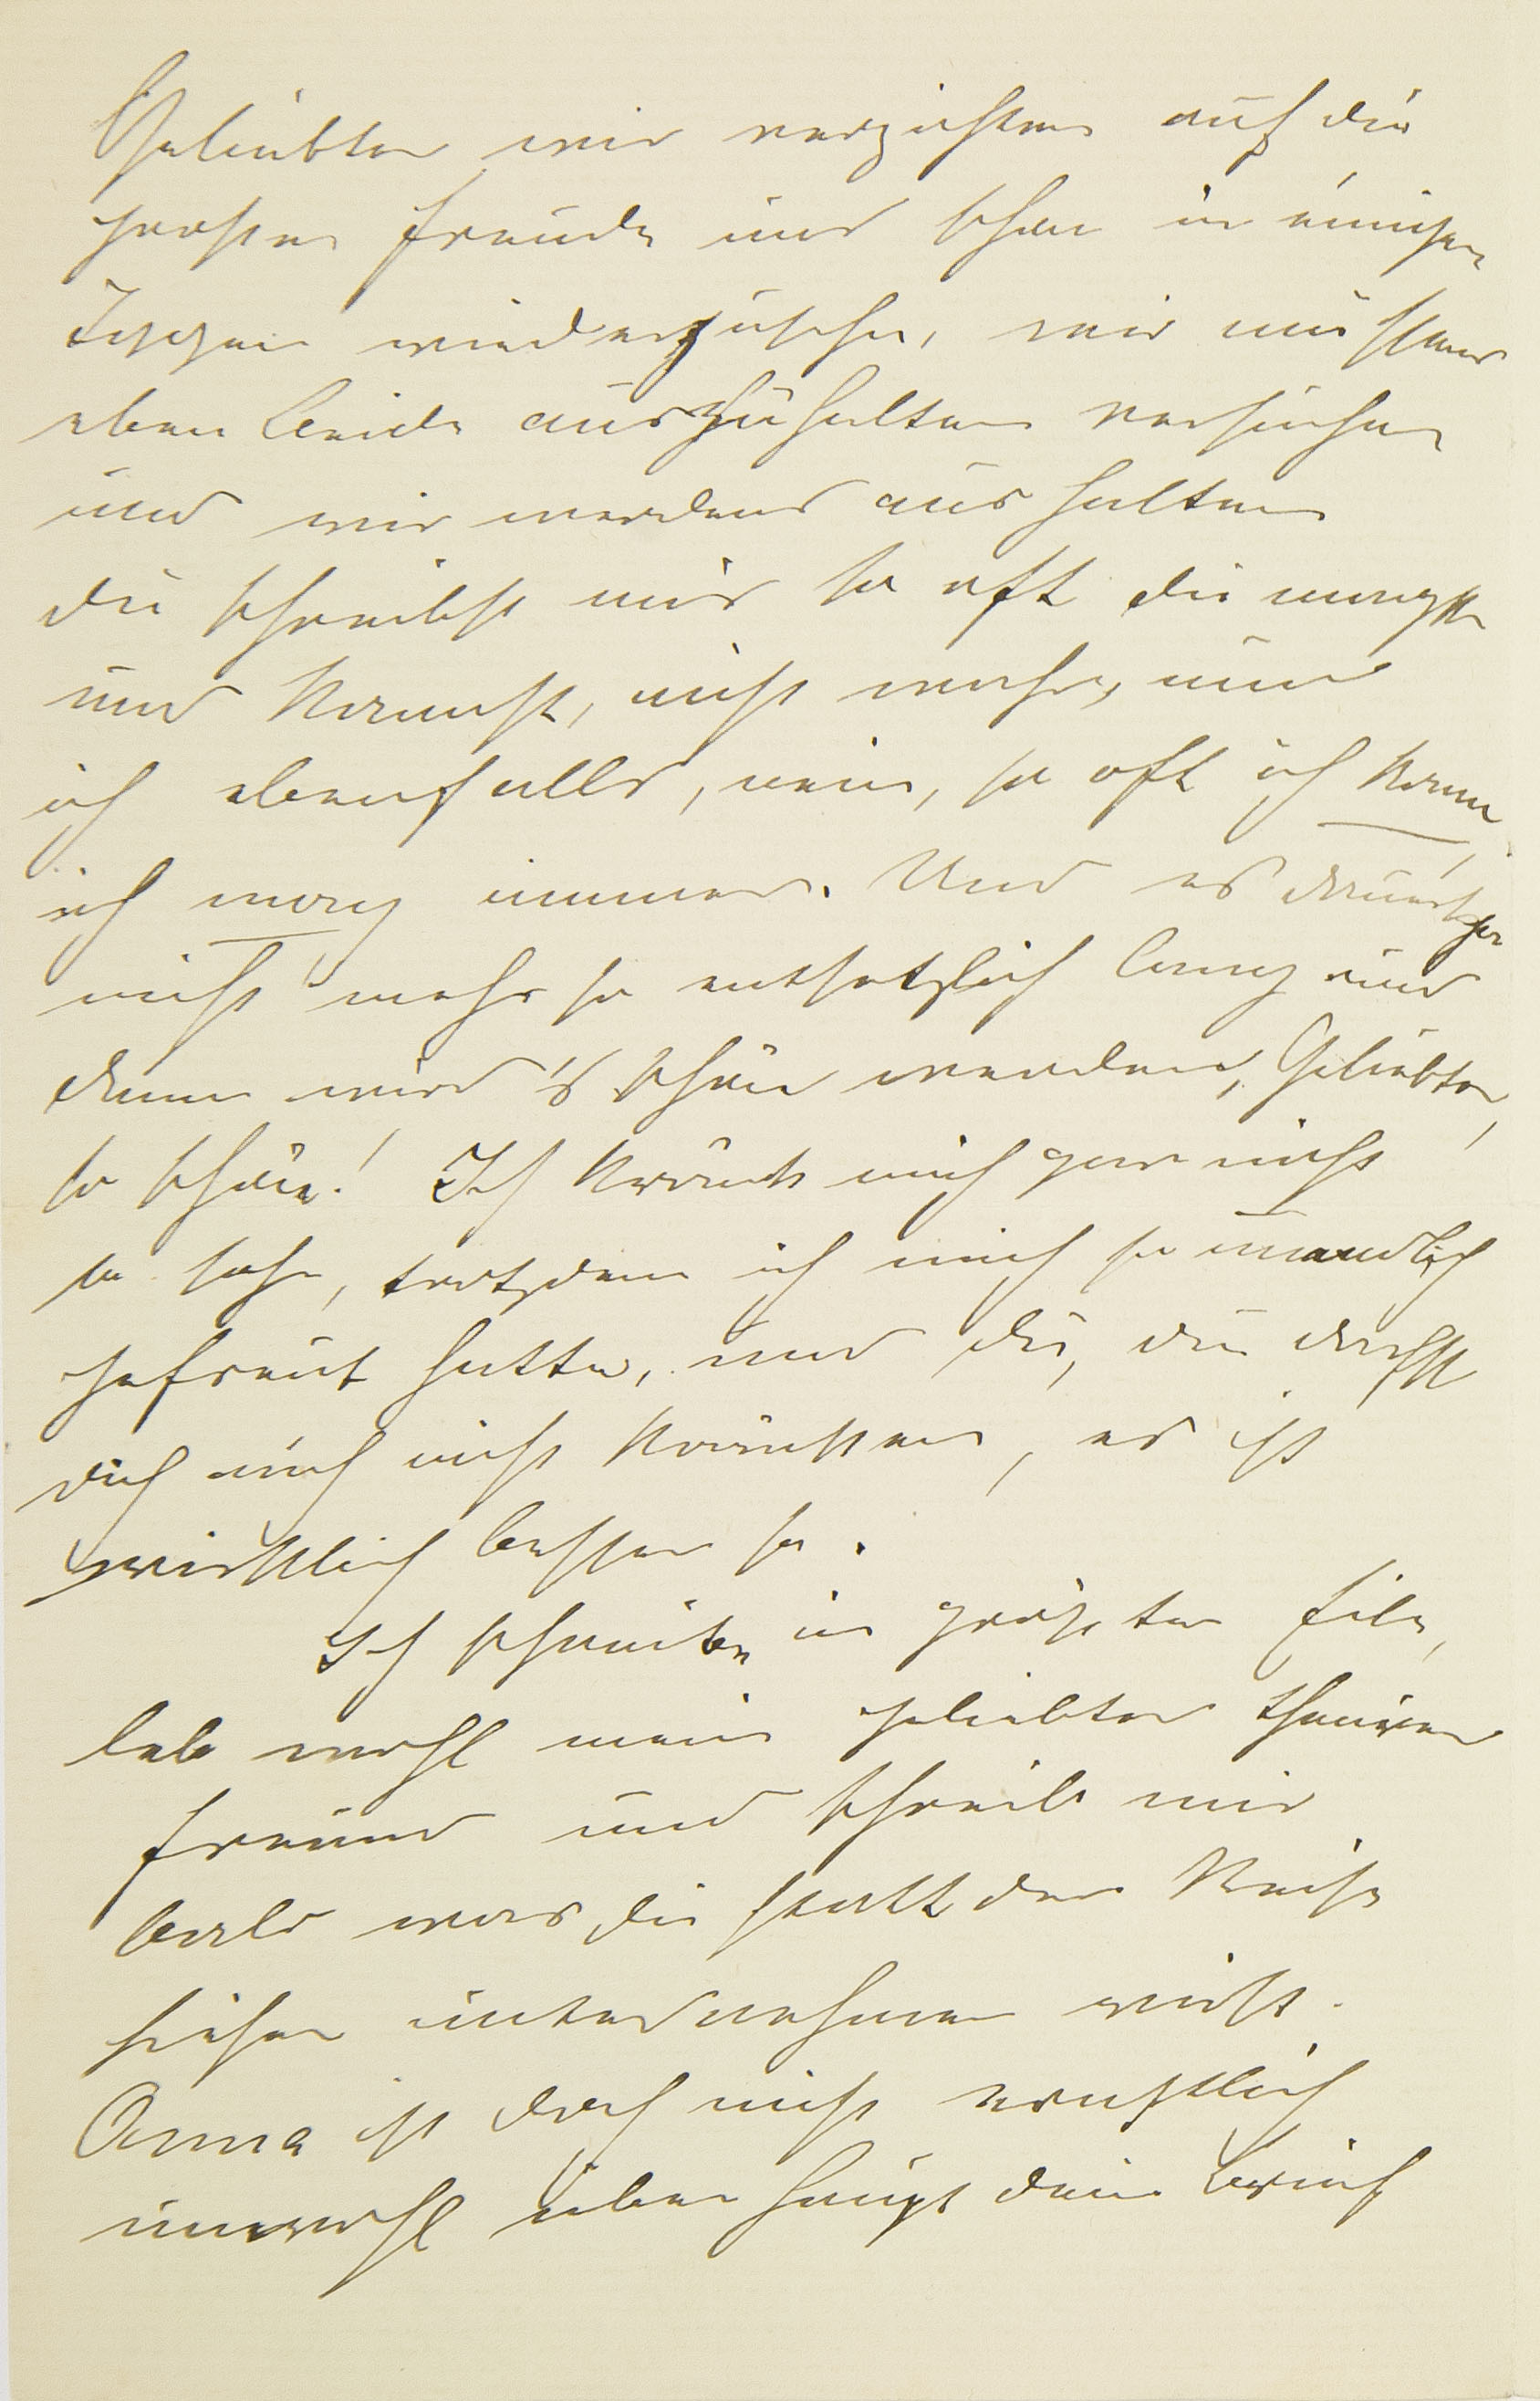 Geliebter wir verzichten auf die
große Freude uns schon in einigen
Tagen wiederzusehen, wir müssens
eben beide auszuhalten versuchen
und wir werdens aushalten
du schreibst mir so oft du magst
und kannst, nicht wahr, und
ich ebenfalls, nein, so oft ich kann
ich mag immer. Und es dauert ja
nicht mehr so entsetzlich lang und
dann wird's schön werden, Geliebter,
so schön! Ich kränke mich gar nicht
so sehr, trotzdem ich mich so unendlich
gefreut hatte, und du, du darfst
dich auch nicht kränken, es ist
wirklich besser so.
Ich schreibe in größter Eile,
leb wohl mein geliebter theurer
Freund und schreib mir
bald was du statt der Reise
hieher unternehmen wirst.
Anna ist doch nicht ernstlich
unwohl überhaupt dein Brief